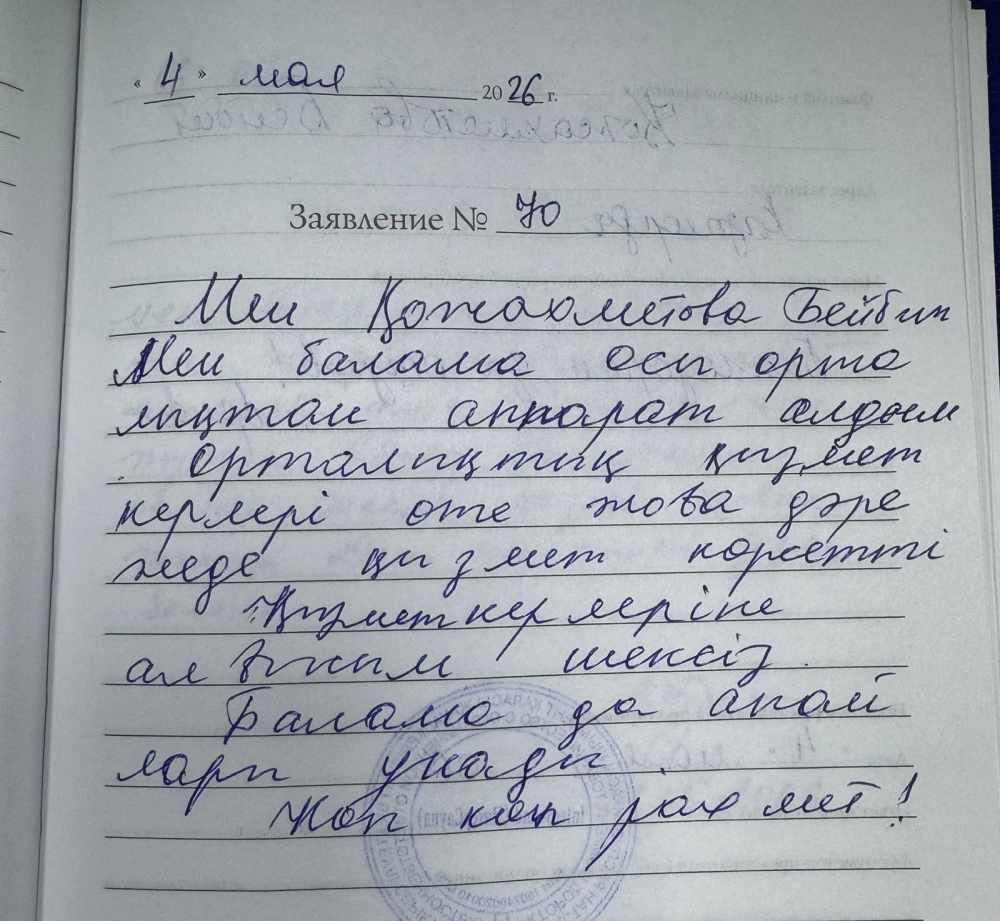 « 4 » мая 2026 г.
Заявление № 70
Мен Қожахметова Бейбит
Мен балама осы орта
лықтан аппарат алдым
Орталықтың қызмет
керлері оте жоға дәре
жеде қызмет корсетті
Қызметкерлеріне
алғысым шексіз.
Балама да апай
лары унады
Коп коп рахмет!